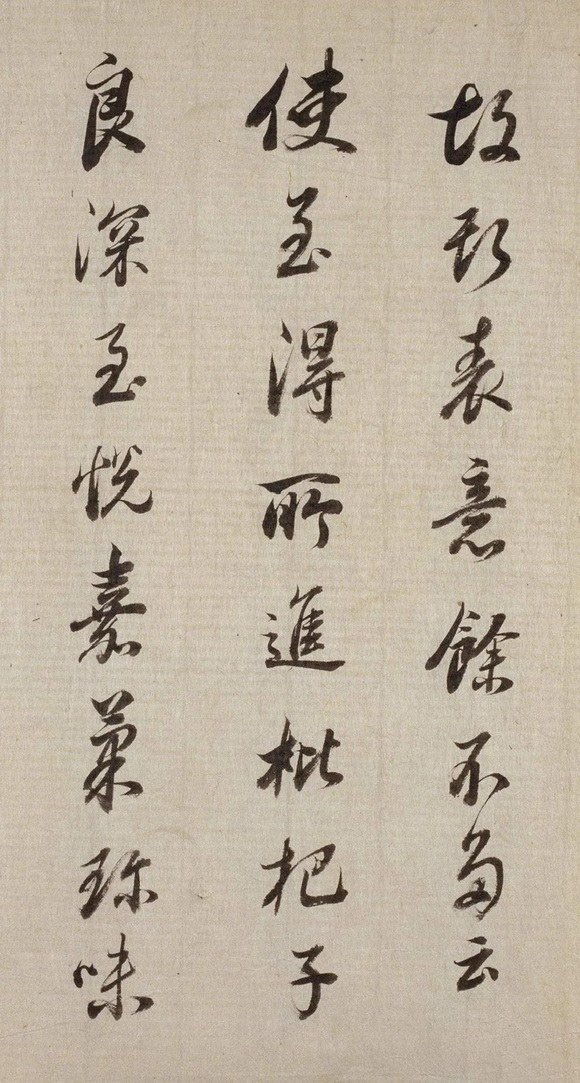 故斯表意餘不多云
使至得所進枇杷子
良深至悦嘉菓珍味